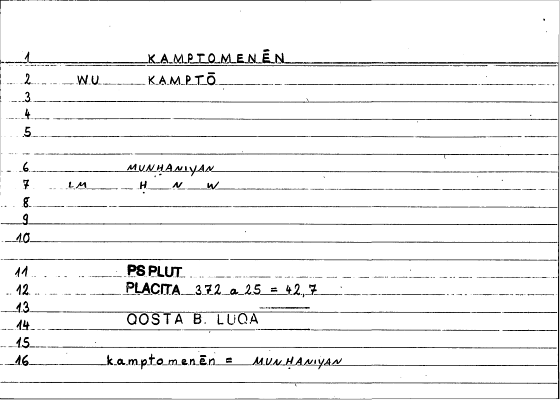 1 KAMPTOMENĒN
2 WU KAMPTŌ
3
4
5
6 MUNHANIYAN
7 LM H N W
8
9
10
11 PS PLUT
12 PLACITA 372 a 25 = 42,7
13
14 QOSTA B. LUQA
15
16 kamptomenēn = MUNHANIYAN